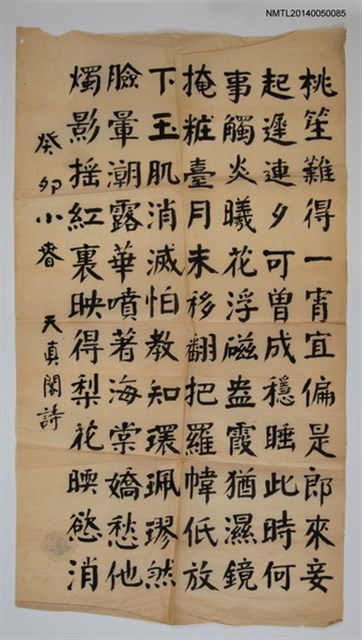 NMTL20140050085
桃笙難得一宵宜偏是郎來妾
起遲連夕可曾成穩睡此時何
事觸炎曦花浮磁盎霞猶濕鏡
掩粧臺月未移翻把羅幃低放
下玉肌消滅怕教知環珮璆然
臉暈潮露華噴著海棠嬌愁他
燭影搖紅裏映得梨花慾消
癸卯小春 天真閣詩